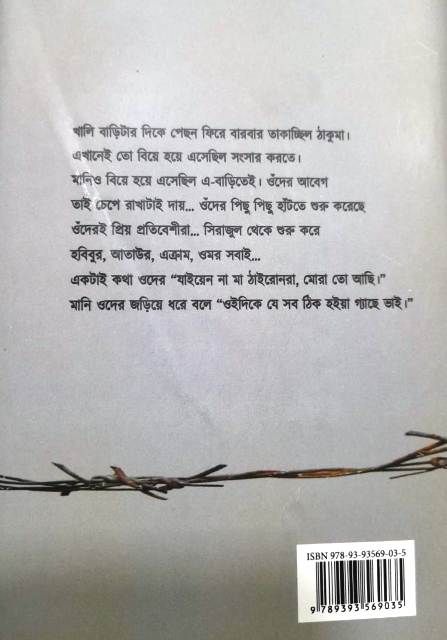 খালি বাড়িটার দিকে পেছন ফিরে বারবার তাকাচ্ছিল ঠাকুমা।
এখানেই তো বিয়ে হয়ে এসেছিল সংসার করতে।
মানিও বিয়ে হয়ে এসেছিল এ-বাড়িতেই। ওঁদের আবেগ
তাই চেপে রাখাটাই দায়... ওঁদের পিছু পিছু হাঁটতে শুরু করেছে
ওঁদেরই প্রিয় প্রতিবেশীরা... সিরাজুল থেকে শুরু করে
হবিবুর, আতাউর, এক্রাম, ওমর সবাই...
একটাই কথা ওদের “যাইয়েন না মা ঠাইরোনরা, মোরা তো আছি।”
মানি ওদের জড়িয়ে ধরে বলে “ওইদিকে যে সব ঠিক হইয়া গ্যাছে ভাই।”
ISBN 978-93-93569-03-5
9 789393 569035